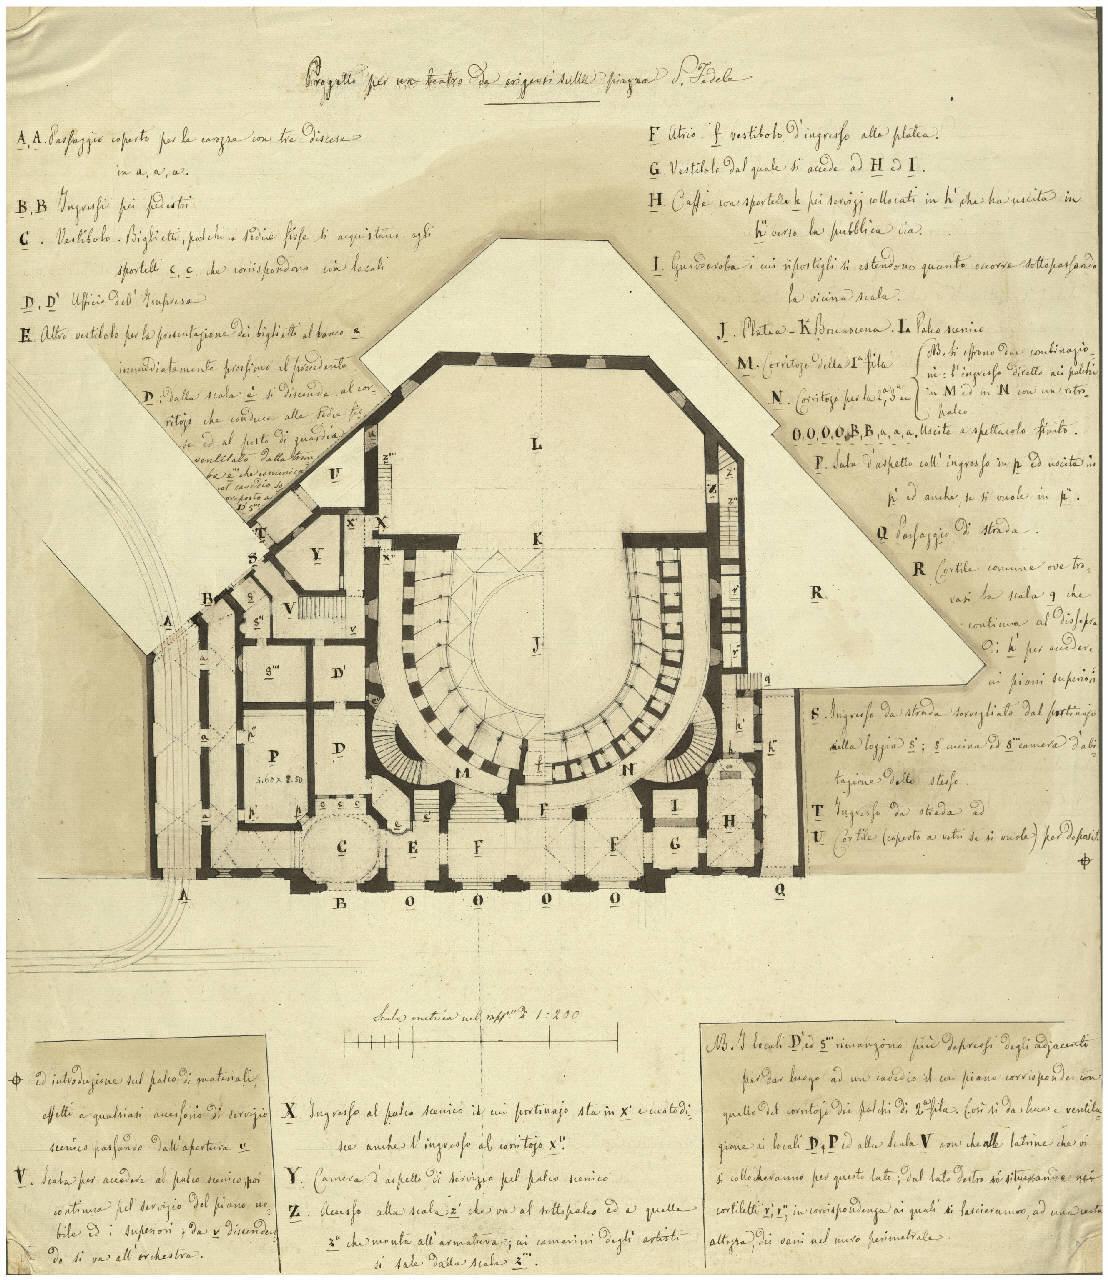 Progetto per un teatro da erigersi sulla piazza S. Fedele
A, A. Passaggio coperto per le carozze con tre discese
in a, a, a.
B, B Ingressi pei pedestri
C. Vestibolo. Biglietti, palchi e sedie fisse si acquistano agli
sportelli c, c che corrispondono coi locali
D, D' Ufficio dell' Impresa
E. Altro vestibolo per la presentazione dei biglietti al banco e
immediatamente prossimo il precedente
D; dalla scala e' si discende al cor-
ritojo che conduce alle sedie fis-
se ed al posto di guardia
ventilato dalla
che comunica
col cavedio
D' S'''
F Atrio f vestibolo d'ingresso alla platea.
G Vestibolo dal quale si accede ad H ed I.
H Caffè con sportello h pei servizj collocati in h', che ha uscita in
h'' verso la pubblica via.
I. Guardaroba i cui ripostigli si estendono quanto occorre sottopassando
la vicina scala.
J. Platea - K Boccascena. L Palco scenico
M. Corritojo della 1a fila
N. Corritojo per la 2a, 3a
NB. Si offrono due combinazio-
ni: l'ingresso diretto ai palchi
in M ed in N con un retro-
palco
O, O, O, O, B, B, a, a, a. Uscite a spettacolo finito.
P. Sala d'aspetto coll' ingresso in p ed uscita in
p' ed anche, se si vuole in p''.
Q Passaggio di strada.
R Cortile comune ove tro-
vasi la scala q che
continua al dissopra
di h' per accedere
ai piani superiori
S. Ingresso da strada sorvegliato dal portinajo
nella loggia s'; s'' cucina ed s''' camera d'abi-
tazione dello stesso
T Ingresso da strada ad
U Cortile (coperto a vetri se si vuole) per depositi
L
U
X
X'
X''
Y
T
S
K
Z
z'
z''
z'''
R
B
V
J
A
D'
D
P
5.60 x 8.50
M
N
F
I
H
C
E
F
F
G
A
B
O
O
O
O
Q
Scala metrica nel rapp.to di 1:200
ed introduzione sul palco di materiali,
effetti e qualsiasi accessorio di servizio
scenico passando dall'apertura u
V. Scala per accedere al palco scenico, poi
continua pel servizio del piano no-
bile ed i superiori; da v discenden-
do si va all'orchestra.
X Ingresso al palco scenico il cui portinajo sta in x' e custodi-
sce anche l'ingresso al corritojo x''
Y. Camera d'aspetto di servizio pel palco scenico
Z. Accesso alla scala z' che va al sottopalco ed a quella
z'' che monta all'armatura; ai camerini degli artisti
si sale dalla scala z'''.
NB. I locali D', ed S''' rimangono più depressi degli adjacenti
per dar luogo ad un cavedio il cui piano corrisponde con
quello del corritojo dei palchi di 2a fila. Così si da luce e ventila-
zione ai locali D, P ed alla scala V non che alle latrine che vi
si collocheranno per questo lato; dal lato destro si situeranno nei
cortiletti r', r'', in corrispondenza ai quali si lascieranno, ad una certa
altezza, dei vani nel muro perimetrale.